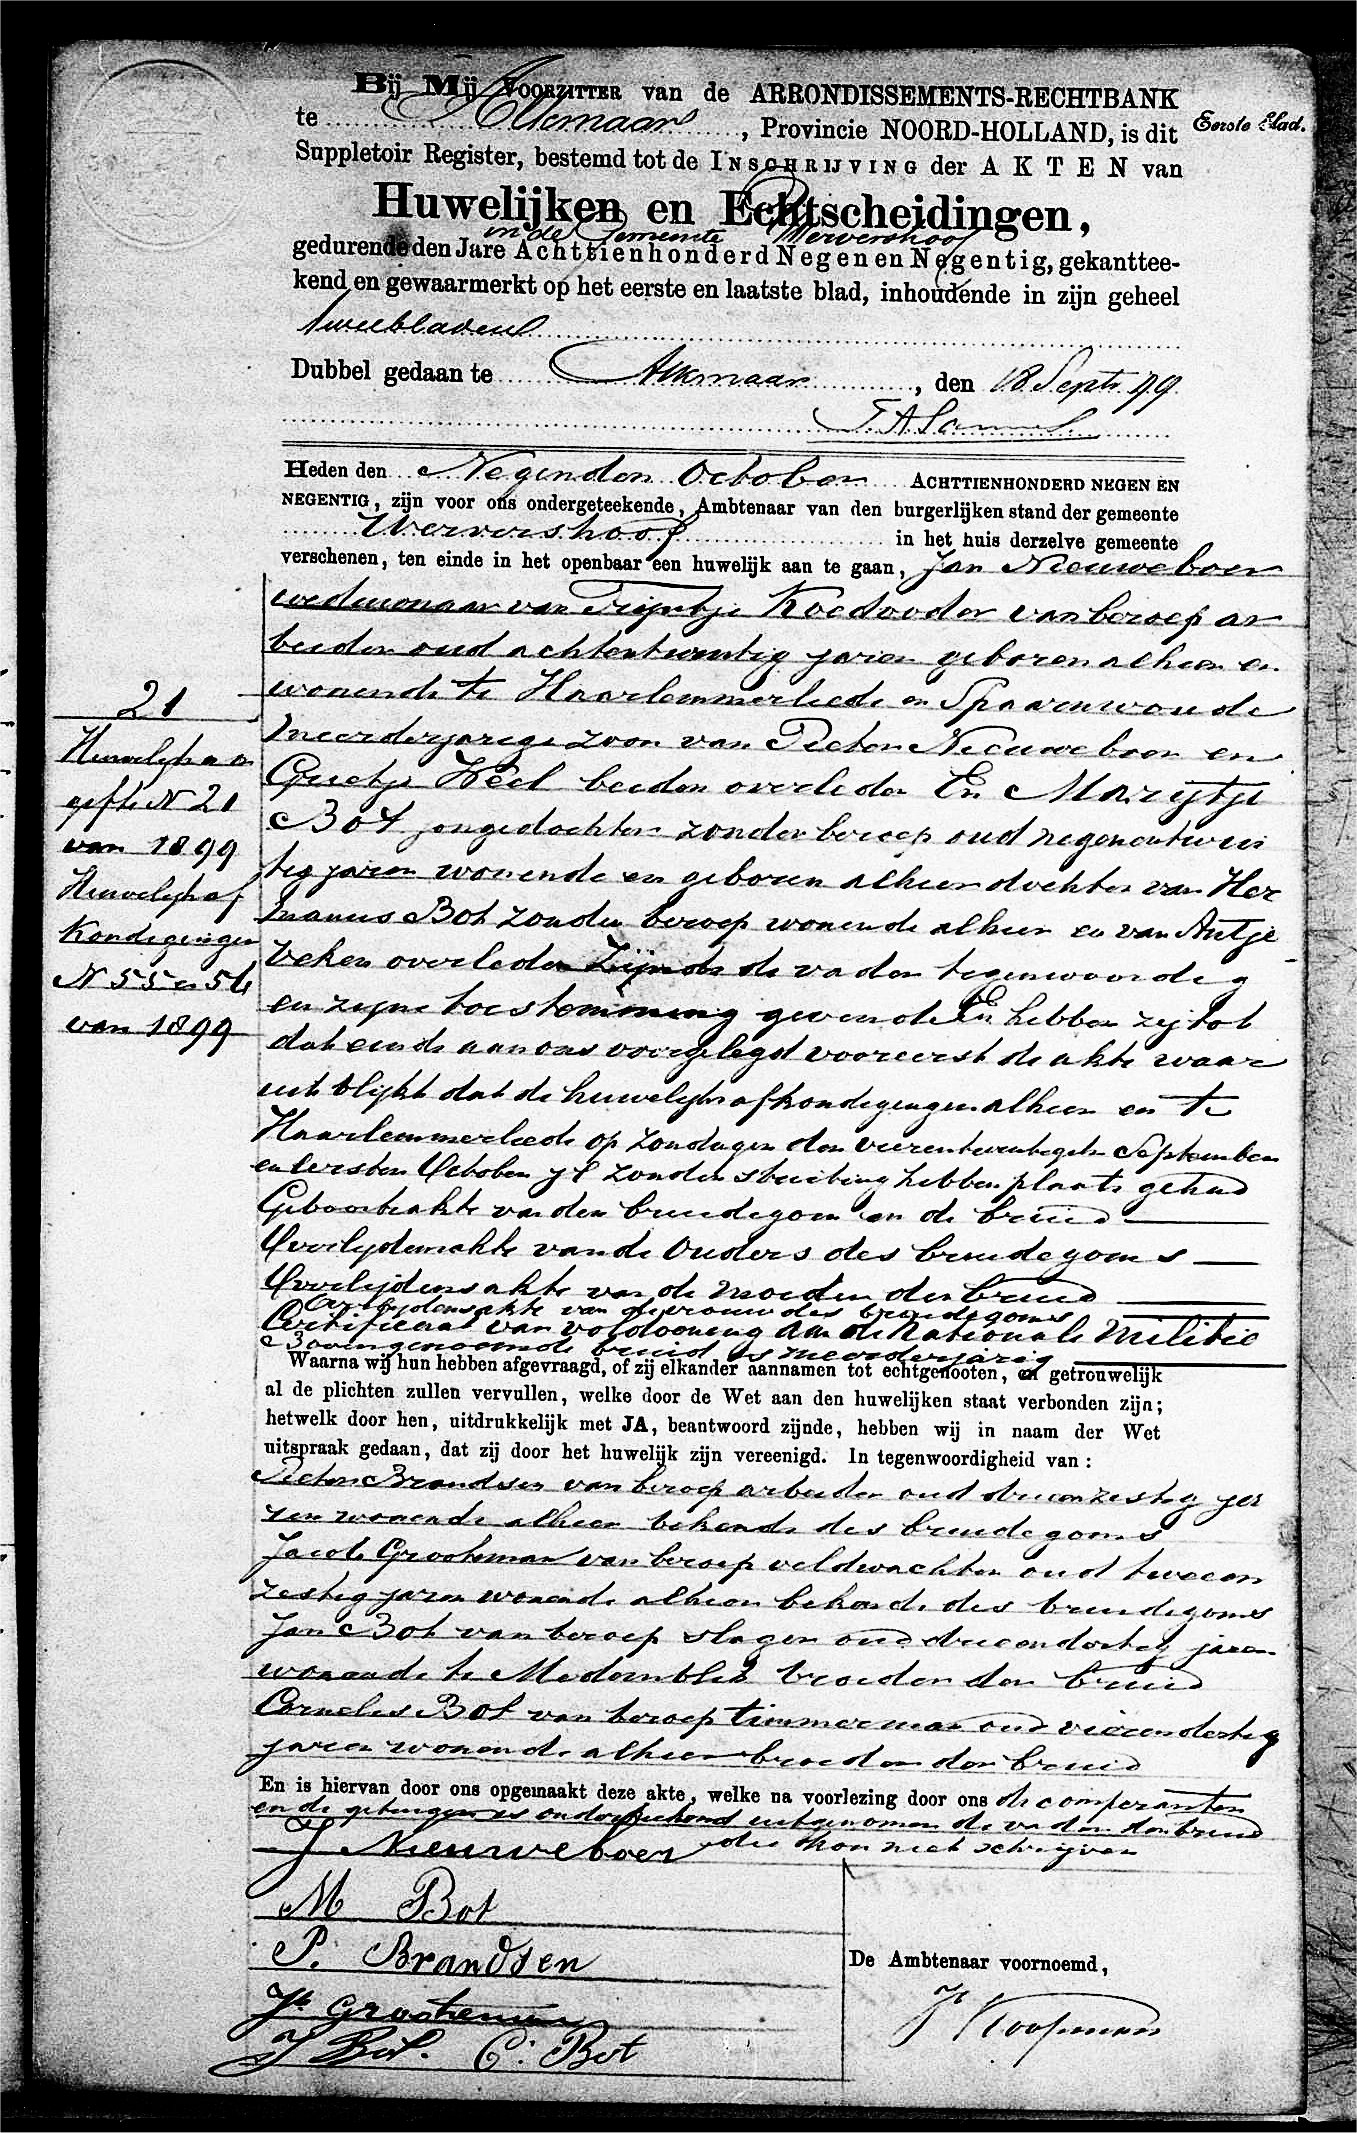 Bij Mij Voorzitter van de ARRONDISSEMENTS-RECHTBANK
te Alkmaar, Provincie NOORD-HOLLAND, is dit
Eerste blad.
Suppletoir Register, bestemd tot de INSCHRIJVING der AKTEN van
Huwelijken en Echtscheidingen,
in de Gemeente Wervershoof
gedurende den Jare Achttienhonderd Negen en Negentig, gekanttee-
kend en gewaarmerkt op het eerste en laatste blad, inhoudende in zijn geheel
twee bladen
Dubbel gedaan te Alkmaar, den 18 Septr. 99.
Heden den Negenden October ACHTTIENHONDERD NEGEN EN
NEGENTIG, zijn voor ons ondergeteekende, Ambtenaar van den burgerlijken stand der gemeente
Wervershoof in het huis derzelve gemeente
verschenen, ten einde in het openbaar een huwelijk aan te gaan, Jan Nieuweboer
weduwnaar van Trijntje Koedooder van beroep ar
beider oud achtentwintig jaren geboren alhier en
wonende te Haarlemmerliede en Spaarnwoude
meerderjarige zoon van Pieter Nieuweboer en
Grietje Weel beiden overleden En Marijtje
Bot jongedochter zonder beroep oud negenentwin
tig jaren wonende en geboren alhier dochter van Her
manus Bot zonder beroep wonende alhier en van Antje
Veken overleden Zijnde de vader tegenwoordig
en zijne toestemming gevende En hebben zij tot
dat einde aan ons voorgelegd vooreerst de akte waar
uit blijkt dat de huwelijksafkondigingen alhier en te
Haarlemmerliede op zondagen den vierentwintigsten September
en eersten October jl zonder stuiting hebben plaats gehad
Geboorteakte van den bruidegom en de bruid
Overlijdensakte van de Ouders des bruidegoms
Overlijdensakte van de moeder der bruid
Overlijdensakte van de vrouw des bruidegoms
Certificaat van voldoening aan de Nationale Militie
Bovengenoemde bruid is meerderjarig
Waarna wij hun hebben afgevraagd, of zij elkander aannamen tot echtgenooten, en getrouwelijk
al de plichten zullen vervullen, welke door de Wet aan den huwelijken staat verbonden zijn;
hetwelk door hen, uitdrukkelijk met JA, beantwoord zijnde, hebben wij in naam der Wet
uitspraak gedaan, dat zij door het huwelijk zijn vereenigd. In tegenwoordigheid van:
Pieter Brandsen van beroep arbeider oud drieenzestig ja
ren wonende alhier bekende des bruidegoms
Jacob Grooteman van beroep veldwachter oud tweeen
zestig jaren wonende alhier bekende des bruidegoms
Jan Bot van beroep slager oud drieendertig jaren
wonende te Medemblik broeder der bruid
Cornelis Bot van beroep timmerman oud vierendertig
jaren wonende alhier broeder der bruid
En is hiervan door ons opgemaakt deze akte, welke na voorlezing door ons de comparanten
en de getuigen is onderteekend uitgenomen de vader der bruid
die kon niet schrijven
J Nieuweboer
M Bot
P. Brandsen
Jb Grooteman
J Bot. C. Bot
De Ambtenaar voornoemd,
Jb Koopman
21
Huwelijks aan
gifte N 21
van 1899
Huwelijksaf
Kondigingen
N 55 en 56
van 1899